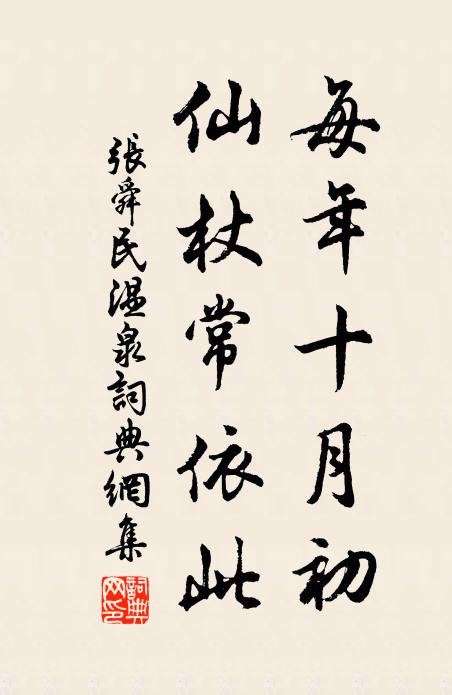 每年十月初
仙杖常依此
張舜民温泉詞典網集
詞典網印